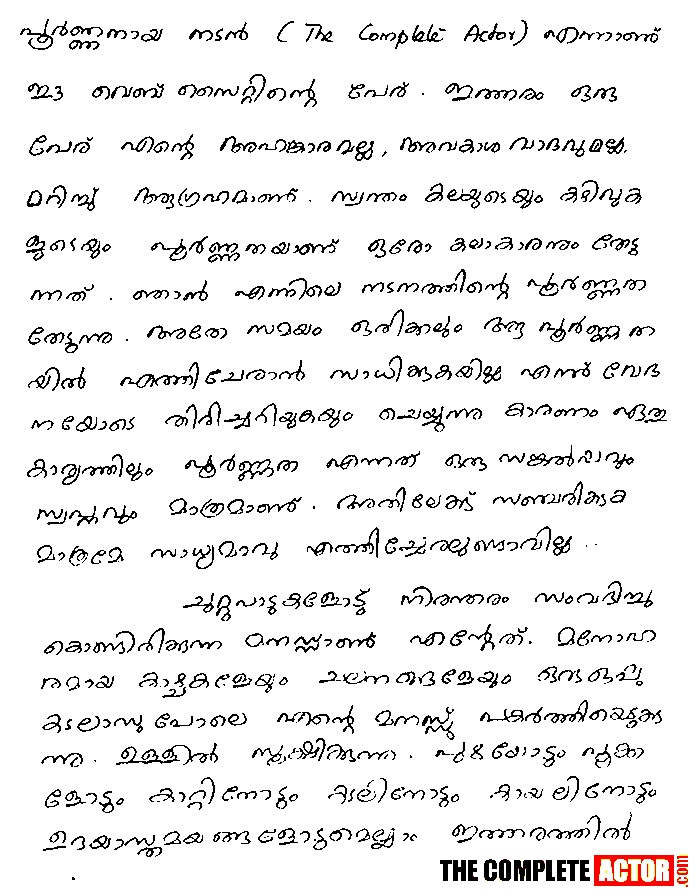 പൂർണ്ണനായ നടൻ (The Complete Actor) എന്നാണ്
ഈ വെബ് സൈറ്റിന്റെ പേര്. ഇത്തരം ഒരു
പേര് എന്റെ അഹങ്കാരമല്ല, അവകാശ വാദവുമല്ല.
മറിച്ച് ആഗ്രഹമാണ്. സ്വന്തം കലയുടെയും കഴിവുക
ളുടെയും പൂർണ്ണതയാണ് ഒരോ കലാകാരനും തേടു
ന്നത്. ഞാൻ എന്നിലെ നടനത്തിന്റെ പൂർണ്ണത
തേടുന്നു. അതേ സമയം ഒരിക്കലും ആ പൂർണ്ണത
യിൽ എത്തിച്ചേരാൻ സാധിക്കുകയില്ല എന്ന് വേദ
നയോടെ തിരിച്ചറിയുകയും ചെയ്യുന്നു കാരണം ഏതു
കാര്യത്തിലും പൂർണ്ണത എന്നത് ഒരു സങ്കൽപ്പവും
സ്വപ്നവും മാത്രമാണ്. അതിലേക്ക് സഞ്ചരിക്കുക
മാത്രമേ സാധ്യമാവൂ എത്തിച്ചേരലുണ്ടാവില്ല..
ചുറ്റുപാടുകളോട് നിരന്തരം സംവദിച്ചു
കൊണ്ടിരിക്കുന്ന മനസ്സാണ് എന്റേത്. മനോഹ
രമായ കാഴ്ചകളേയും ചലനങ്ങളേയും ഒരു ഒപ്പു
കടലാസു പോലെ എന്റെ മനസ്സ് പകർത്തിയെടുക്കു
ന്നു. ഉള്ളിൽ സൂക്ഷിക്കുന്നു. പുഴയോടും പൂക്ക
ളോടും കാറ്റിനോടും കടലിനോടും കായലിനോടും
ഉദയാസ്തമയങ്ങളോടുമെല്ലാം ഇത്തരത്തിൽ
THE COMPLETE ACTOR.com